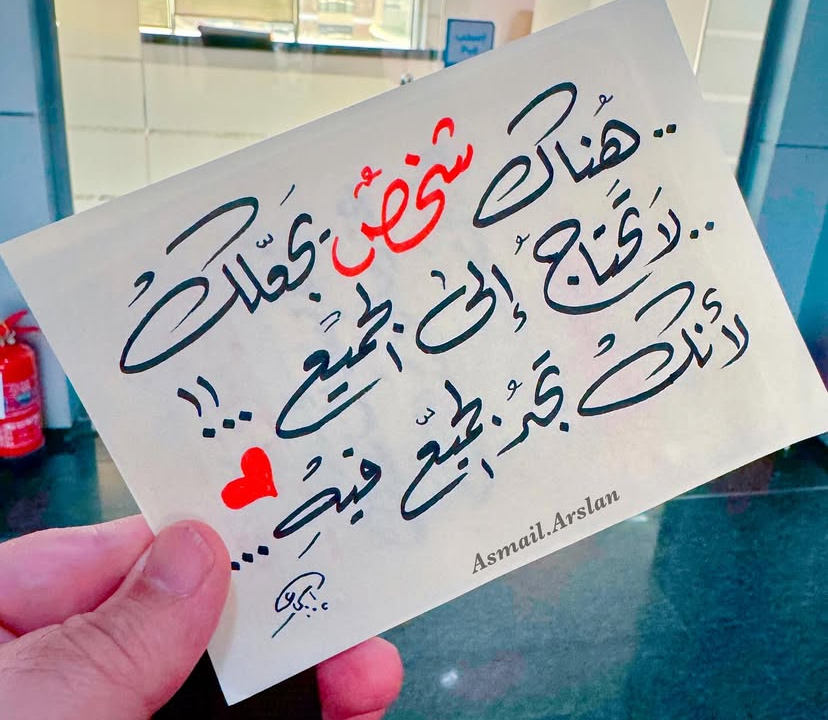 .. هُناك شخصٌ يجعلك
.. لَا تَحتاج إلى الجميع ...!!
لأنك تجدُ الجميع فيهِ ...
Asmail.Arslan